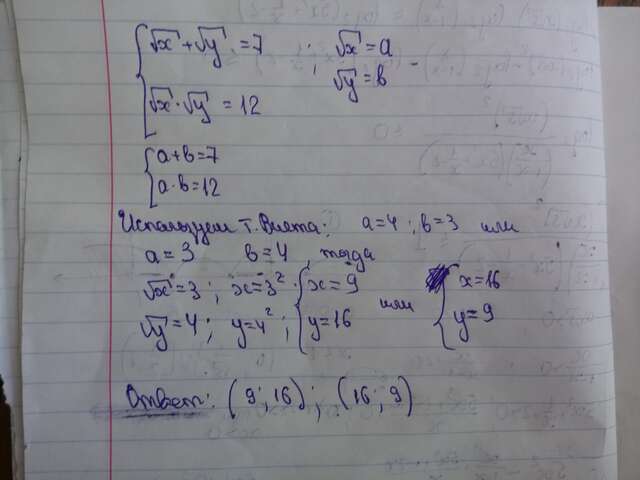 { √x + √y = 7 ; √x = a
√x · √y = 12 √y = b
{ a + b = 7
a · b = 12
Используем т. Виета: a = 4 ; b = 3 или
a = 3 b = 4 тогда
√x = 3 ; x = 3² ; { x = 9 или { x = 16
√y = 4 ; y = 4² ; y = 16 y = 9
Ответ: (9 ; 16) ; (16 ; 9)